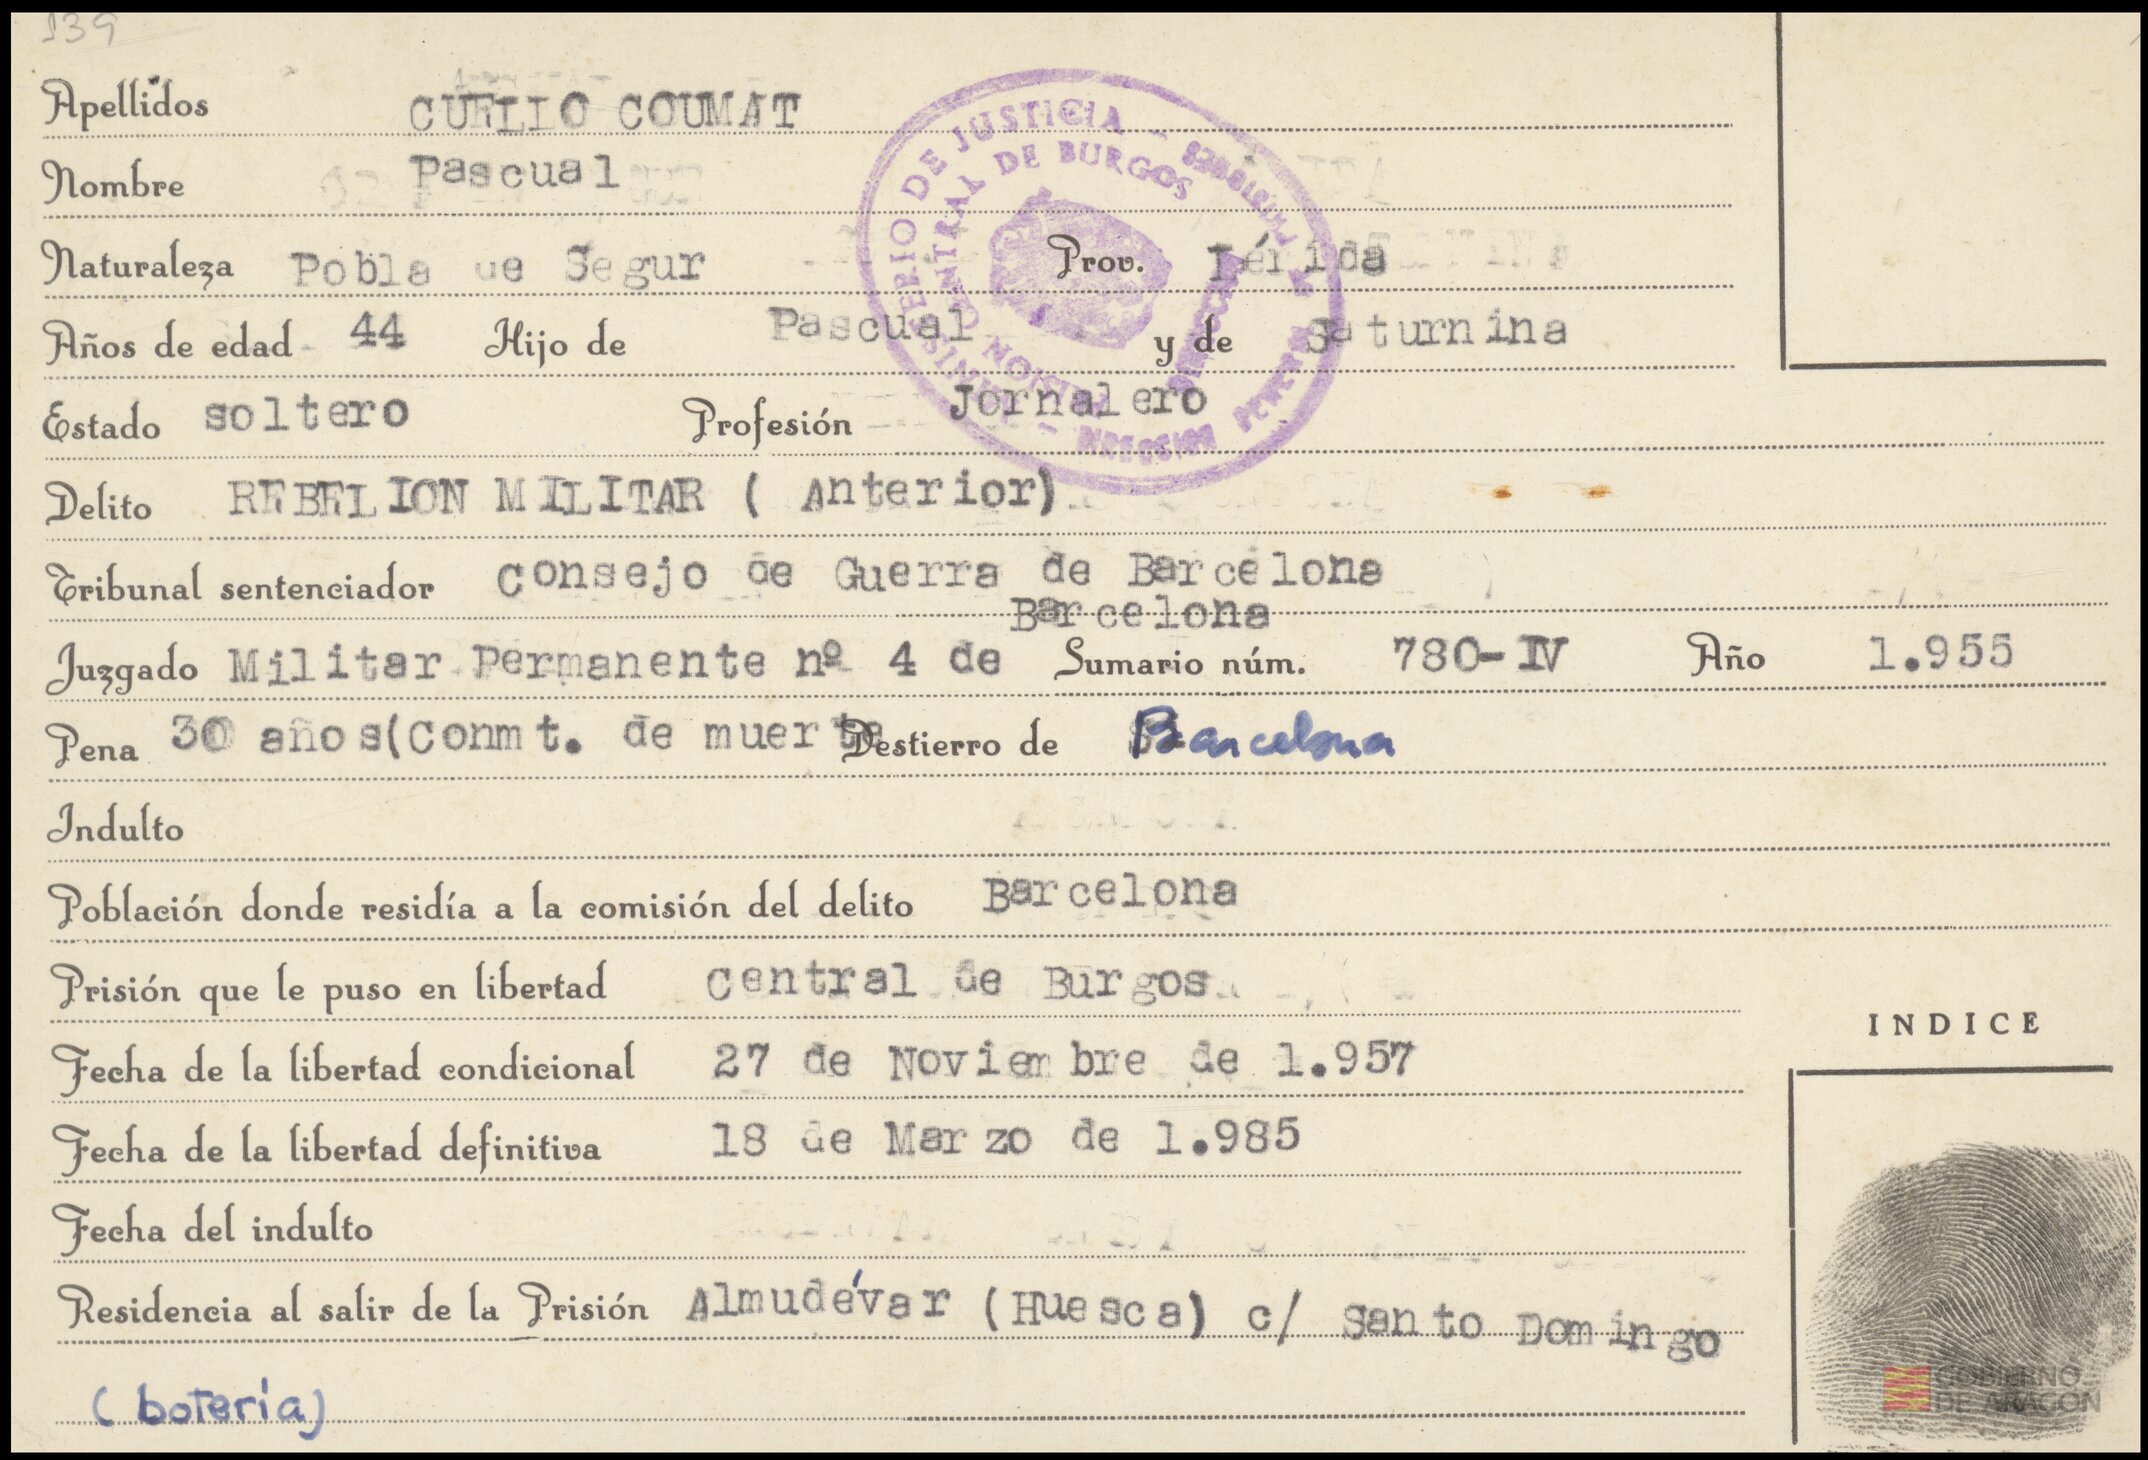 139
Apellidos CUELLO COUMAT
Nombre Pascual
Naturaleza Pobla de Segur Prov. Lérida
Años de edad 44 Hijo de Pascual y de Saturnina
Estado soltero Profesión Jornalero
Delito REBELION MILITAR ( Anterior)
Tribunal sentenciador Consejo de Guerra de Barcelona
Barcelona
Juzgado Militar Permanente nº 4 de Sumario núm. 780-IV Año 1.955
Pena 30 años(Conmt. de muerte Destierro de Barcelona
Indulto
Población donde residía a la comisión del delito Barcelona
Prisión que le puso en libertad Central de Burgos
Fecha de la libertad condicional 27 de Noviembre de 1.957
Fecha de la libertad definitiva 18 de Marzo de 1.985
Fecha del indulto
Residencia al salir de la Prisión Almudévar (Huesca) c/ Santo Domingo
(botería)
INDICE
MINISTERIO DE JUSTICIA - DIRECCION
PRISION CENTRAL DE BURGOS
DIRECCION
GOBIERNO
DE ARAGON